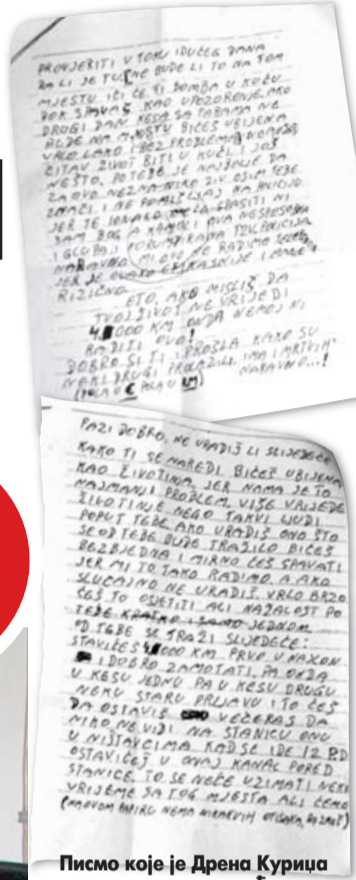 PROVJERITI U TOKU IDUĆEG DANA
DA LI JE TU, NE BUDE LI TO NA TOM
MJESTU IĆI ĆE TI BOMBA U KUĆU
DOK SPAVAŠ KAO UPOZORENJE AKO
DRUGI DAN KESA SA PARAMA NE
BUDE NA MJESTU BIĆEŠ UBIJENA
VRLO LAKO I BEZ PROBLEMA NEMOŽEŠ
ČITAV ŽIVOT BITI U KUĆI I JOŠ
NEŠTO. PO TEBE JE NAJBOLJE DA
ZA OVO NEZNA NIKO ŽIV OSIM TEBE
ZNAČI I NE POMIŠLJAJ NA
JER TE JONAKO SPASITI NI
SAM BOG A KAMOLI OVA NESPOSOBNA
I GLUPA I KORUMPIRANA TZV. POLICIJA
NARAVNO MI OVO NE RADIMO
JER JE OVAKO EFIKASNIJE I MANJE
RIZIČNO
ETO, AKO MISLIŠ DA
TVOJ ŽIVOT NE VRIJEDI
000 KM ONDA NEMOJ NI
RADITI OVO!
DOBRO SI TI I PROŠLA KAKO SU
NEKI DRUGI PROLAZILI. IMA I MRTVIH
NARAVNO...!
(POLA U € POLA U KM)
PAZI DOBRO, NE URADIŠ LI SLIJEDEĆE
KAKO TI SE NAREDI BIĆEŠ UBIJENA
KAO ŽIVOTINJA JER NAMA JE TO
NAJMANJI PROBLEM, VIŠE VRIJEDE
ŽIVOTINJE NEGO TAKVI LJUDI
POPUT TEBE AKO URADIŠ ONO ŠTO
SE OD TEBE BUDE TRAŽILO BIĆEŠ
BEZBJEDNA I MIRNO ĆEŠ SPAVATI
JER MI TO TAKO RADIMO. A AKO
SLUČAJNO NE URADIŠ VRLO BRZO
ĆEŠ TO OSJETITI ALI NAŽALOST PO
TEBE KRATKO I SAMO JEDNOM.
OD TEBE SE TRAŽI SLIJEDEĆE:
STAVIĆEŠ 000 KM PRVO U NAJLON
I DOBRO ZAMOTATI, PA ONDA
U KESU JEDNU PA U KESU DRUGU
NEKU STARU PRLJAVU I TO ĆEŠ
DA OSTAVIŠ VEČERAS DA
NIKO NE VIDI NA STANICU ONU
U NIŠTAVCIMA KAD SE IDE 12
OSTAVIĆEŠ U ONAJ KANAL PORED
STANICE. TO SE NEĆE UZIMATI NEKO
VRIJEME SA TOG MJESTA ALI ĆEMO
(NA OVOM PAPIRU NEMA NIKAKVIH OTISAKA,
Писмо које је Дрена Куриџа